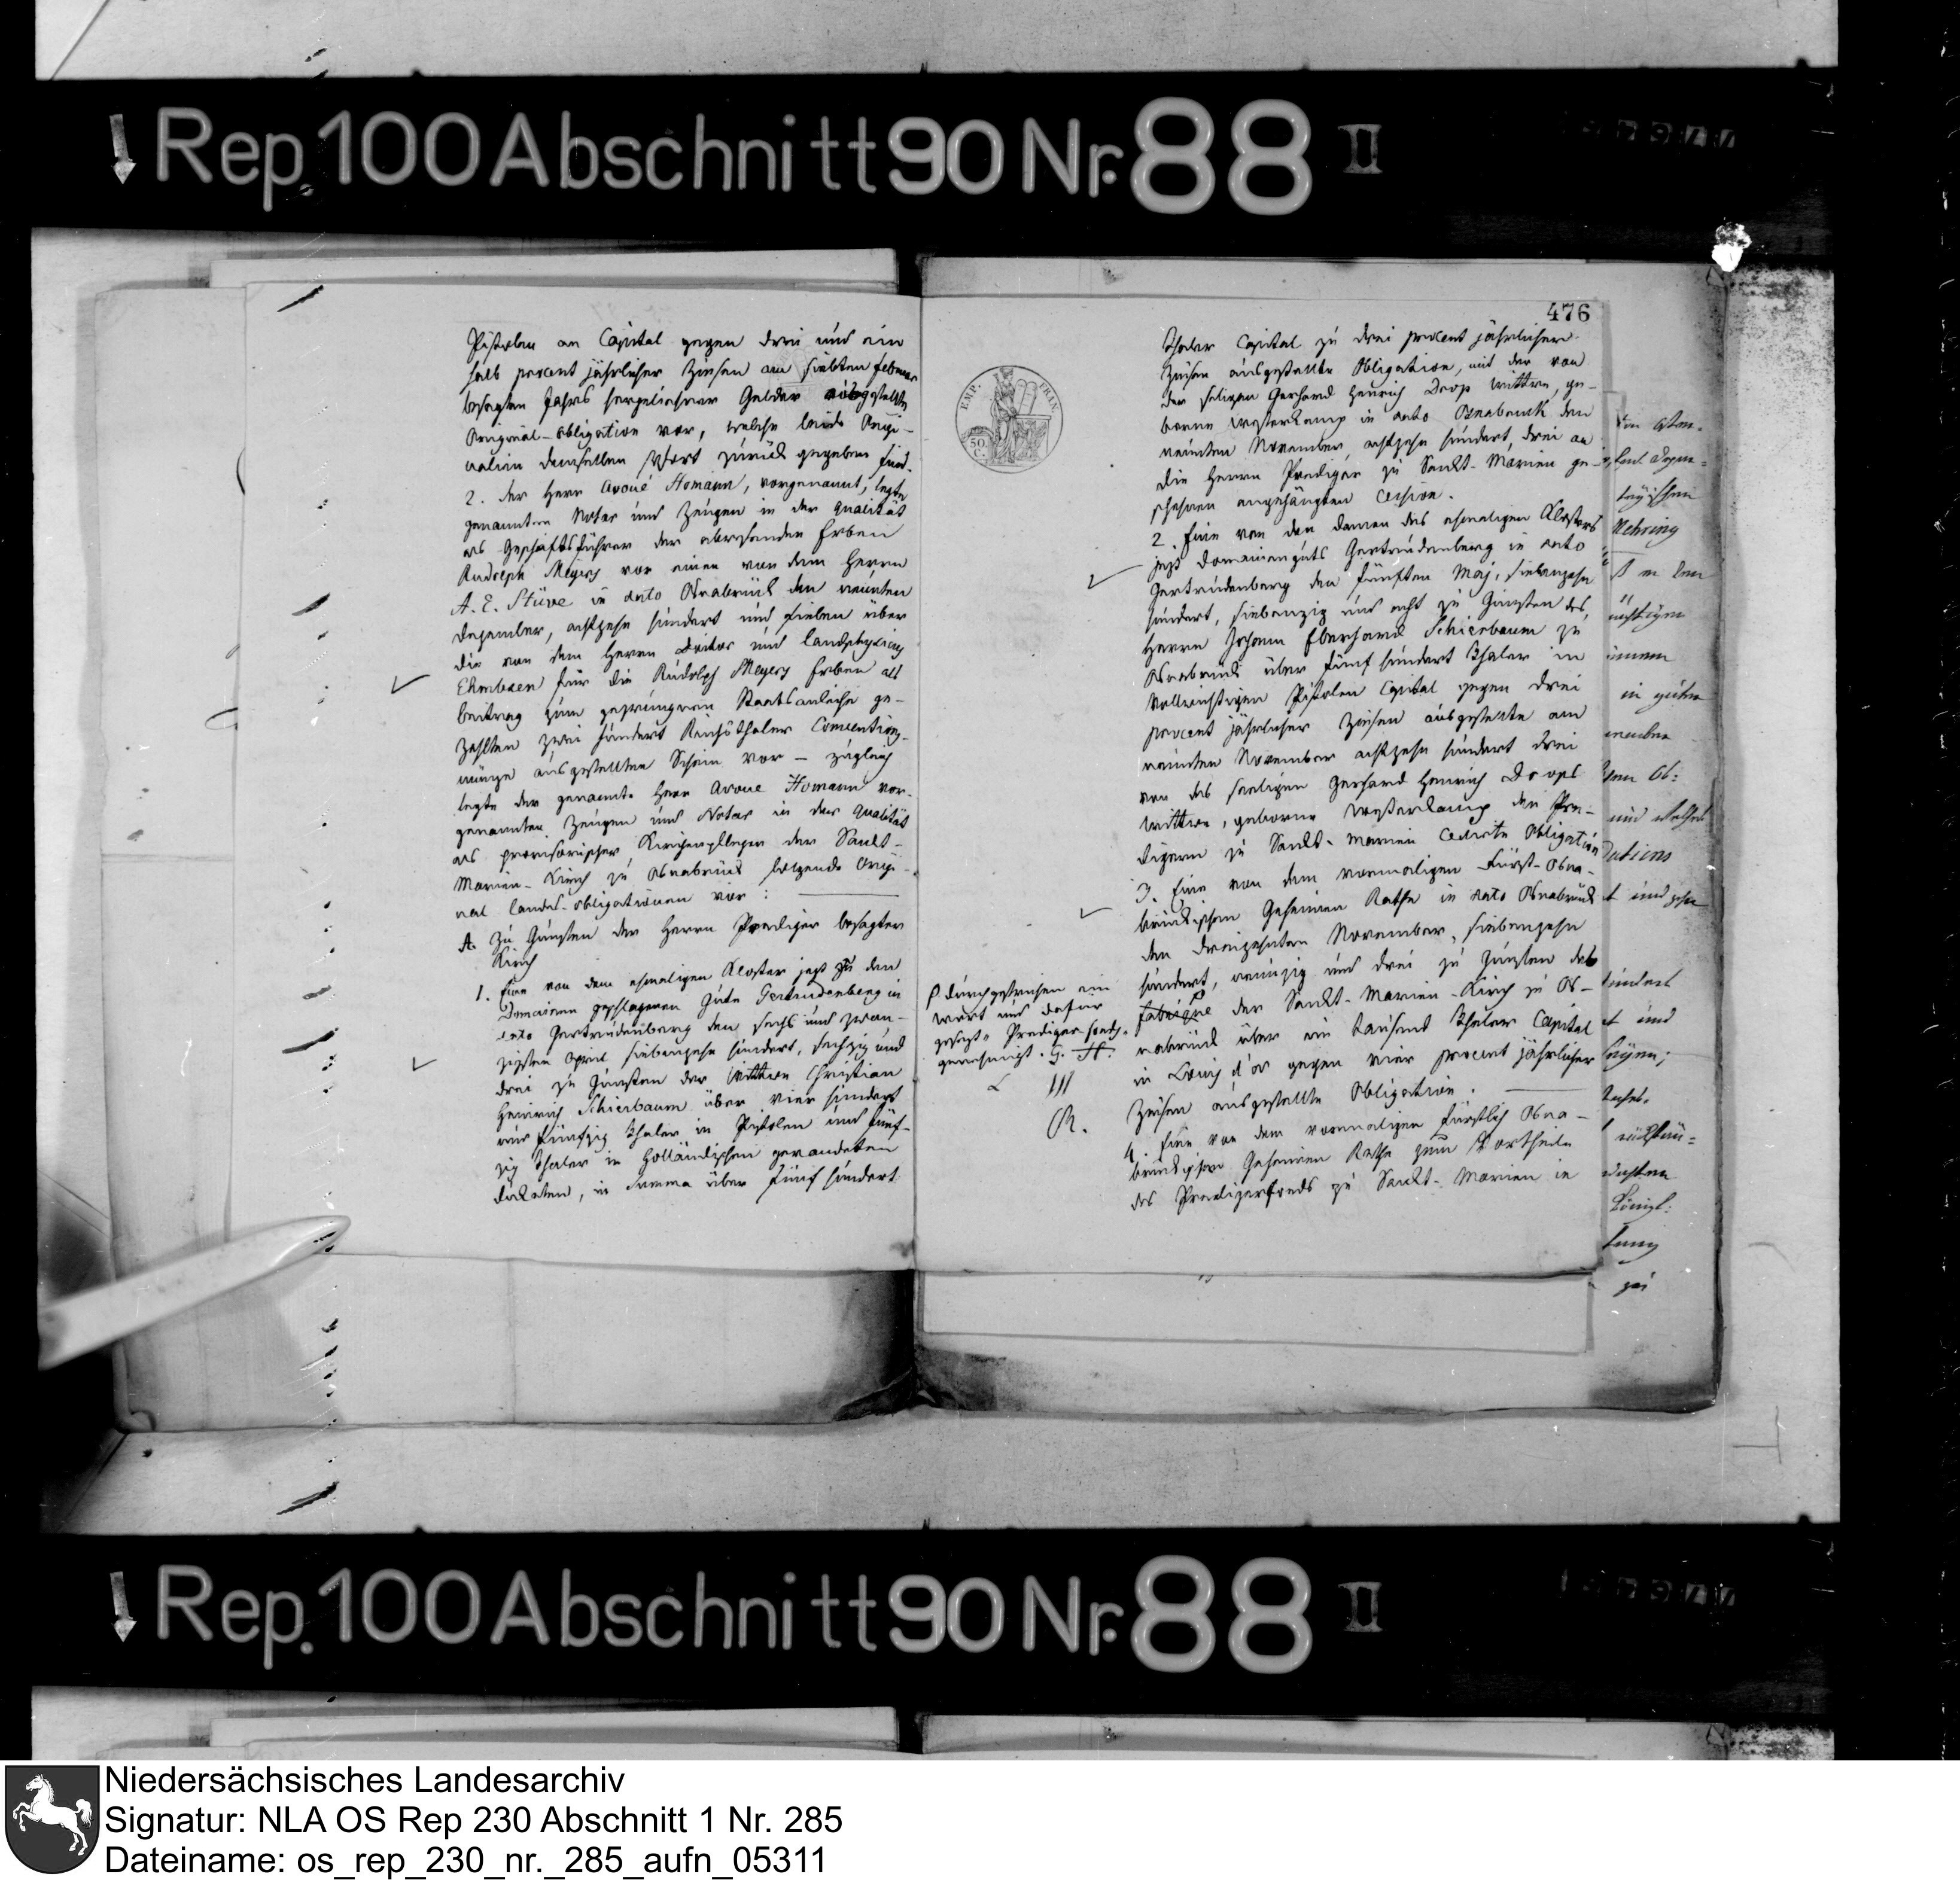 Rep. 100 Abschnitt 90 Nr. 88 II
Pistolen an Capital gegen drei und ein
halb procent jährlicher Zinsen am siebten Februar
besagten Jahrs hergeliehener Gelder ausgestellte
Original-Obligation vor, welche beide Origi-
nalien demselben sofort zurück gegeben sind.
2. der Herr Avoué Homann, vorgenannt, legte
genanntem Notar und Zeugen in der Qualität
als Geschäftsführer der abwesenden Erben
Rudolph Meyers vor einen von dem Herrn
A. E. Stüve in dato Osnabrück den neunten
Dezember, achtzehn hundert und sieben über
die von dem Herrn Doktor und Landphysicus
Ehmbsen für die Rudolph Meyers Erben als
beitrag zum gezwungenen Staatsanleihe ge-
zahlten zwei hundert Reichsthaler Conventions-
münze ausgestellten Schein vor — zugleich
legte der genannte Herr Avoue Homann vor-
genannten Zeugen und Notar in der Qualität
als provisorischer Kirchenpfleger der Sankt-
Marien-Kirch zu Osnabrück folgende Origi-
nal landes-obligationen vor:
A. Zu Gunsten der Herrn Prediger besagter
Kirch
1. Eine von dem ehemaligen Kloster jetzt zu den
Domainen geschlagenen Gute Gertrudenberg in
dato Gertrudenberg den sechs und zwan-
zigsten April siebenzehn hundert, sechzig und
drei zu Gunsten der Wittwe Christian
Heinrich Schierbaum über vier hundert
und fünfzig Thaler in Pistolen und fünf-
zig Thaler in Holländischen gerandeten
Dukaten, in Summa über fünf hundert
476
EMP. FRAN.
50 C.
Thaler Capital zu drei procent jährlicher
Zinsen ausgestellte Obligation, mit der von
der seligen Gerhard Henrich Drop Wittwe, ge-
borne Westerkamp in dato Osnabruck den
neunten November, achtzehn hundert, drei an
die Herrn Prediger zu Sankt-Marien ge-
schehenen angehängten Cession.
2. Eine von den Damen des ehemaligen Klosters
jetzt Domainenguts Gertrudenberg in dato
Gertrudenberg den fünften Maj, siebenzehn
hundert, siebenzig und acht zu Gunsten des
Herrn Johann Eberhard Schierbaum zu
Osnabrück über fünf hundert Thaler in
vollwichtigen Pistolen Capital gegen drei
procent jährlicher Zinsen ausgestellte am
neunten November achtzehn hundert drei
von des seeligen Gerhard Heinrich Droops
Wittwe, geborne Westerkamp den Pre-
digern zu Sankt-Marien cedirte Obligation
3. Eine von dem vormaligen Fürst-Osna-
brückischen Geheimen Rathe in dato Osnabrück
den dreizehnten November, siebenzehn
hundert, neunzig und drei zu Gunsten des
fabrique der Sankt-Marien-Kirch zu Os-
nabrück über ein tausend Thaler Capital
in Louis d'or gegen vier procent jährlicher
Zinsen ausgestellte Obligation.
4. Eine von dem vormaligen Fürstlich Osna-
brückischen Geheimen Rathe zum Vortheile
des Predigerfonds zu Sankt-Marien in
durchgestrichen ein
Wort und dafür
gesetzt "Prediger fonds"
genehmigt. G. H.
Mehring
in guten
und
Königl:
zu
Rep. 100 Abschnitt 90 Nr. 88 II
Niedersächsisches Landesarchiv
Signatur: NLA OS Rep 230 Abschnitt 1 Nr. 285
Dateiname: os_rep_230_nr._285_aufn_05311